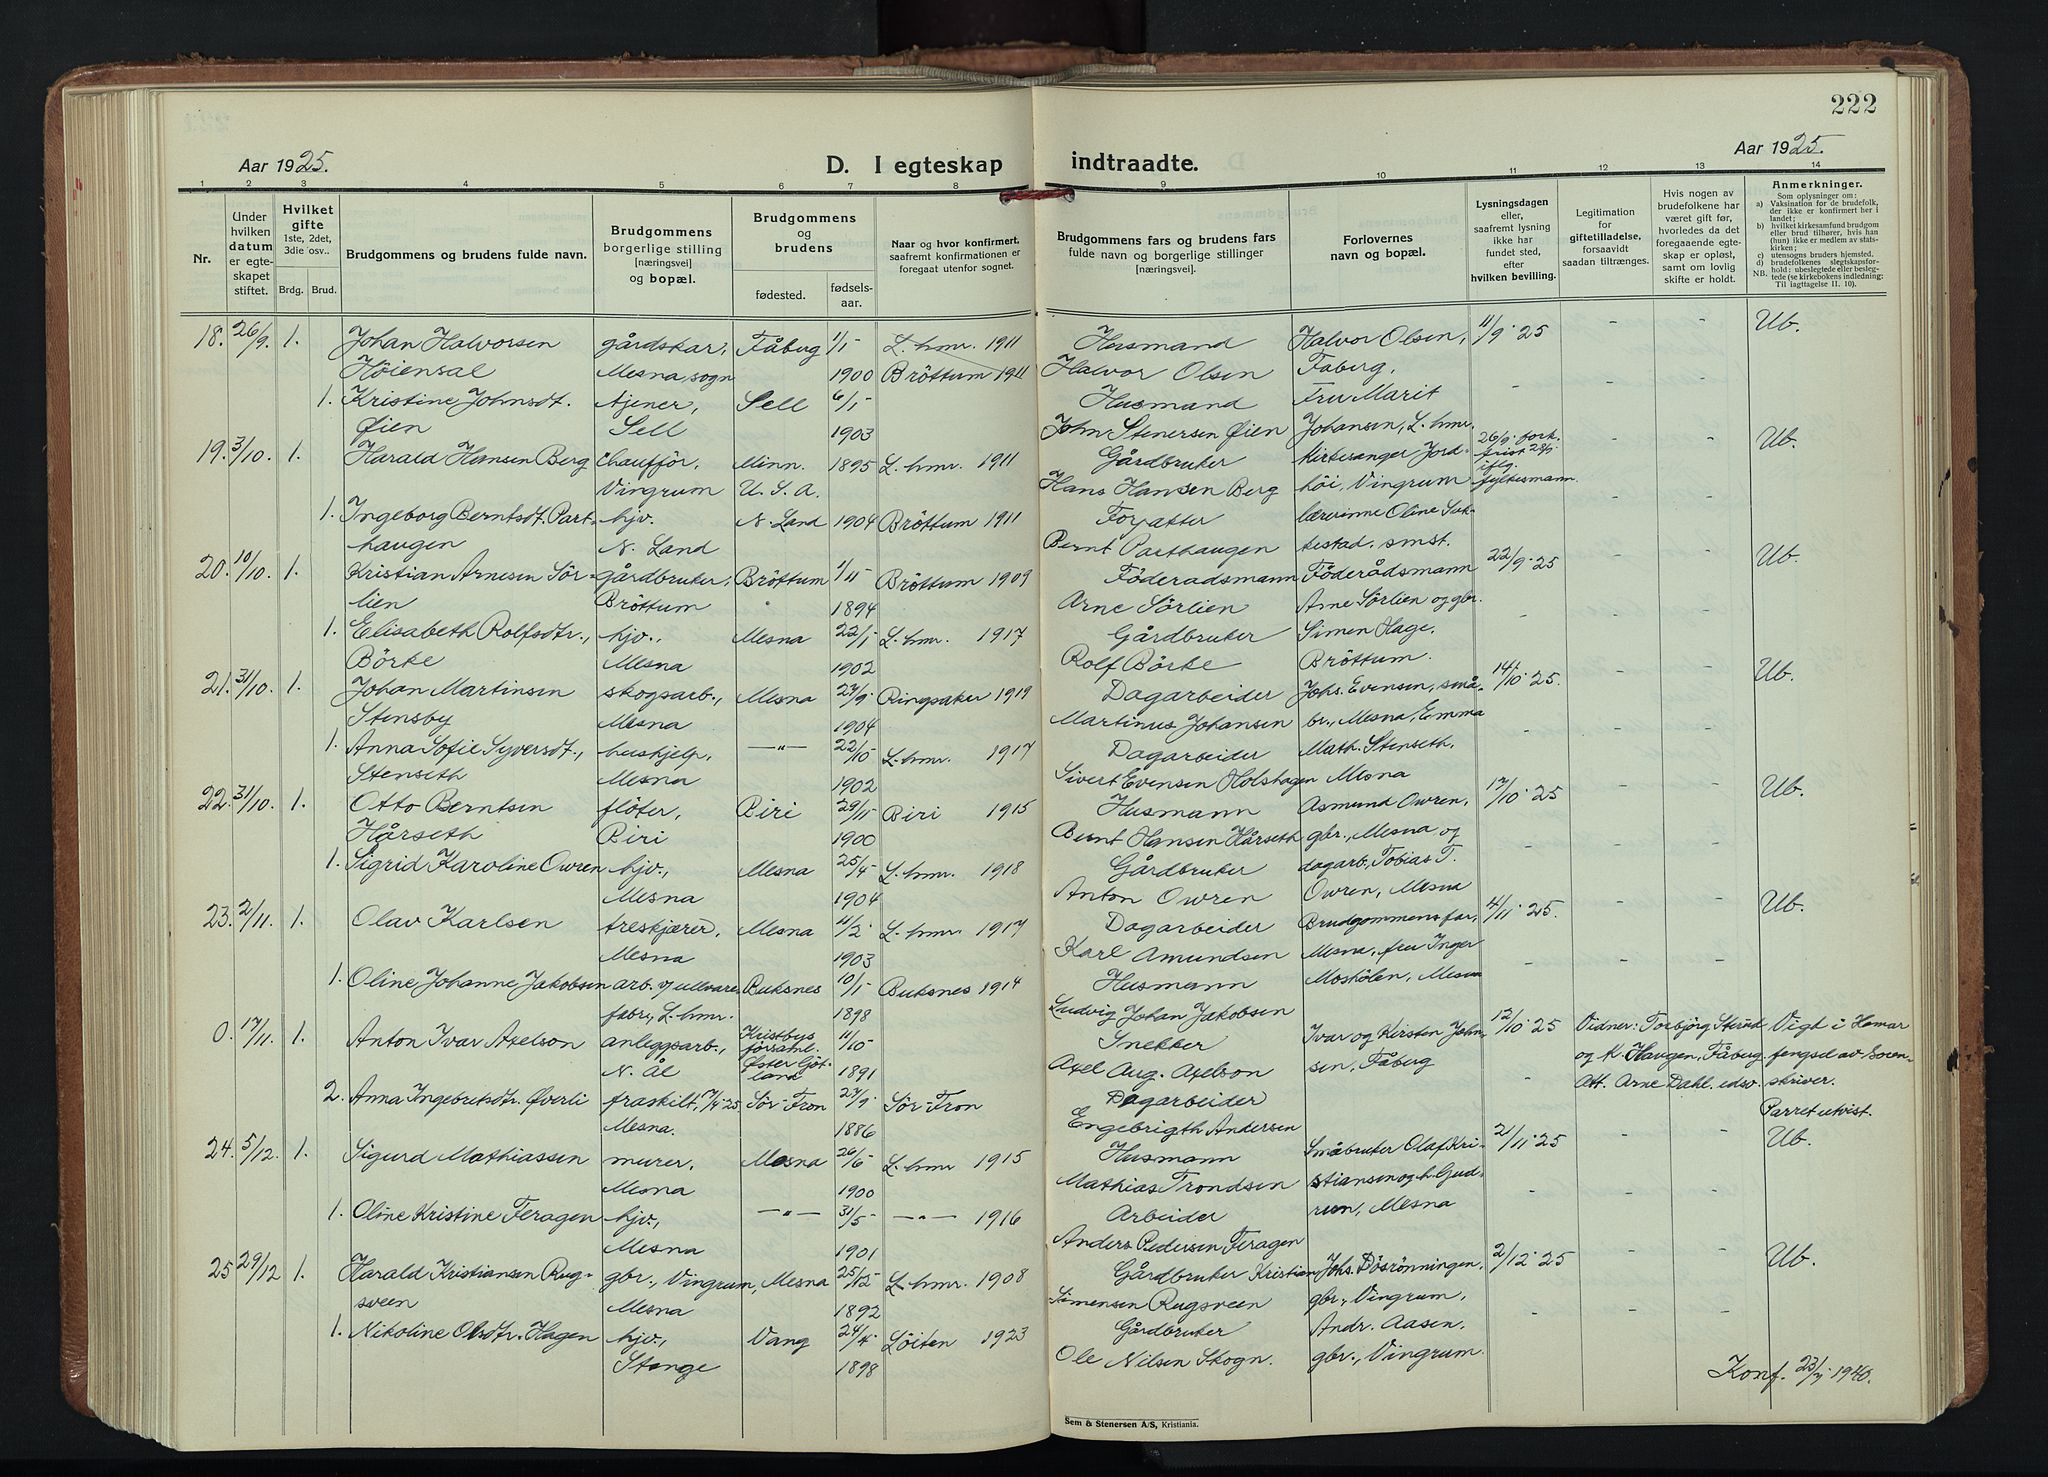 222
Aar 1925.
D. I egteskap indtraadte.
Aar 1925.
1 2 3 4 5 6 7 8 9 10 11 12 13 14
Nr.
Under hvilken datum er egteskapet stiftet.
Hvilket gifte 1ste, 2det, 3die osv..
Brdg. Brud.
Brudgommens og brudens fulde navn.
Brudgommens borgerlige stilling [næringsvei] og bopæl.
Brudgommens og brudens
fødested. fødselsaar.
Naar og hvor konfirmert, saafremt konfirmationen er foregaat utenfor sognet.
Brudgommens fars og brudens fars fulde navn og borgerlige stillinger [næringsvei]
Forlovernes navn og bopæl.
Lysningsdagen eller, saafremt lysning ikke har fundet sted, efter hvilken bevilling.
Legitimation for giftetilladelse, forsaavidt saadan tiltrænges.
Hvis nogen av brudefolkene har været gift før, hvorledes da det foregaaende egteskap er opløst, samt om lovlig skifte er holdt.
Anmerkninger.
Som oplysninger om:
a) Vaksination for de brudefolk, der ikke er konfirmert her i landet;
b) hvilket kirkesamfund brudgom eller brud tilhører, hvis han (hun) ikke er medlem av statskirken;
c) utensogns bruders hjemsted.
d) brudefolkenes slegtskapsforhold: ubeslegtede eller beslegtede (se kirkebokens indledning;
NB. Til iagttagelse II. 10).
18. 26/9. 1. Johan Halvorsen gårdskar, Fåberg 1/1- L.hmr. 1911 Husmand Halvor Olsen, 11/9 25 - - Ub.
Höiensal Mesna sogn 1900 Bröttum 1911 Halvor Olsen Faberg.
1. Kristine Johnsdt. tjener, Sell 6/1- Husmand Fru Marit - - -
Øien Sell 1903 John Stenersen Øien Johansen, L.hmr.
19. 3/10. 1. Harald Hansen Berg chaufför, Minn. 1895 L.hmr. 1911 Gårdbruker kirkesanger Jord- 26/9. fork. frist 28/9 iflg. fylkesmann. - - Ub.
Vingrum U.S.A. Hans Hansen Berg höi, Vingrum
1. Ingeborg Berntsdt. Part- hjv. N. Land 1904 Bröttum 1911 lærvinne Oline - -
haugen N. Land Bernt Parthaugen smst.
20. 10/10. 1. Kristian Arnesen Sör- gårdbruker, Bröttum 1/11 Bröttum 1909 Föderadsmann Föderådsmann 22/9 25 - - Ub.
lien Bröttum 1894 Arne Sörlien Arne Sörlien og gbr.
1. Elisabeth Rolfsdtr., hjv., Mesna 22/1 L.hmr. 1917 Gårdbruker Simen Hage, - - -
Börke Mesna 1902 Rolf Börke Bröttum.
21. 31/10. 1. Johan Martinsen skogsarb., Mesna 27/9 Ringsaker 1919 Dagarbeider Johs. Evensen, små- 14/10 25. - - Ub.
Stensby Mesna 1904 Martinus Johansen br., Mesna, Emma
1. Anna Sofie Syversdt., huskjelp, —"— 22/10 L.hmr. 1917 Dagarbeider Math. Stenseth, - - -
Stenseth Mesna 1902 Sivert Evensen Holshagen Mesna
22. 31/10. 1. Otto Berntsen flöter, Biri 29/11 Biri 1915 Husmann Asmund Owren, 17/10 25 - - Ub.
Hårseth Biri 1900 Bernt Hansen Hårseth gbr., Mesna og
1. Sigrid Karoline Owren hjv., Mesna 25/4 L.hmr. 1918 Gårdbruker dagarb. Tobias T. - - -
Mesna 1904 Anton Owren Owren, Mesna
23. 21/11. 1. Olav Karlsen treskjærer, Mesna 11/2 L.hmr. 1917 Dagarbeider Brudgommens far, 4/11 25. - - Ub.
Mesna 1903 Karl Amundsen Mesna, fru Inger
1. Oline Johanne Jakobsen arb. v/ ullvare- Buksnes 10/1 Buksnes 1914 Husmann Moskölen, Mesna - - -
fabr., L.hmr. 1898 Ludvig Johan Jakobsen
0. 17/11. 1. Anton Ivar Axelson anleggsarb., Kristbys forsaml. 11/10 Snekker Ivar og Kirsten John- 12/10 25 Vidner: Torbjörg Strand Vigt i Hamar
N. Ål Øster Götland 1891 Axel Aug. Axelson sen, Fåberg og K. Haugen, Fåberg. fengsel av Soren-
2. Anna Ingebretsdtr. Øverli fraskilt, 7/4 25 Sör-Fron 27/9 Sör-Fron Dagarbeider - Att. Arne Dahl. edsv. skriver.
Mesna. 1886 Engebrigth Andersen Parret utvist.
24. 5/12. 1. Sigurd Mathiassen murer, Mesna 26/6 L.hmr. 1915 Husmann Småbruker Olaf Kri- 21/11 25 - - Ub.
Mesna 1900 Mathias Trondsen stiansen og h. Gud-
1. Oline Kristine Feragen hjv., —"— 31/5 —"— 1916 Arbeider run, Mesna - - -
Mesna 1901 Anders Pedersen Feragen
25 29/12 1. Harald Kristiansen Rug- gbr., Vingrum, Mesna 25/12 L.hmr. 1908 Gårdbruker Kristian Johs. Dösrönningen, 2/12 25 - - Ub.
sveen Mesna 1892 Simensen Rugsveen gbr., Vingrum,
1. Nikoline Olsdtr. Hagen hjv., Vang 24/4 Löiten 1923 Gårdbruker Andr. Aasen, - - -
Stange 1898 Ole Nilsen Skogn. gbr., Vingrum.
Konf. 23/7 1940.
Sem & Stenersen A/S, Kristiania.